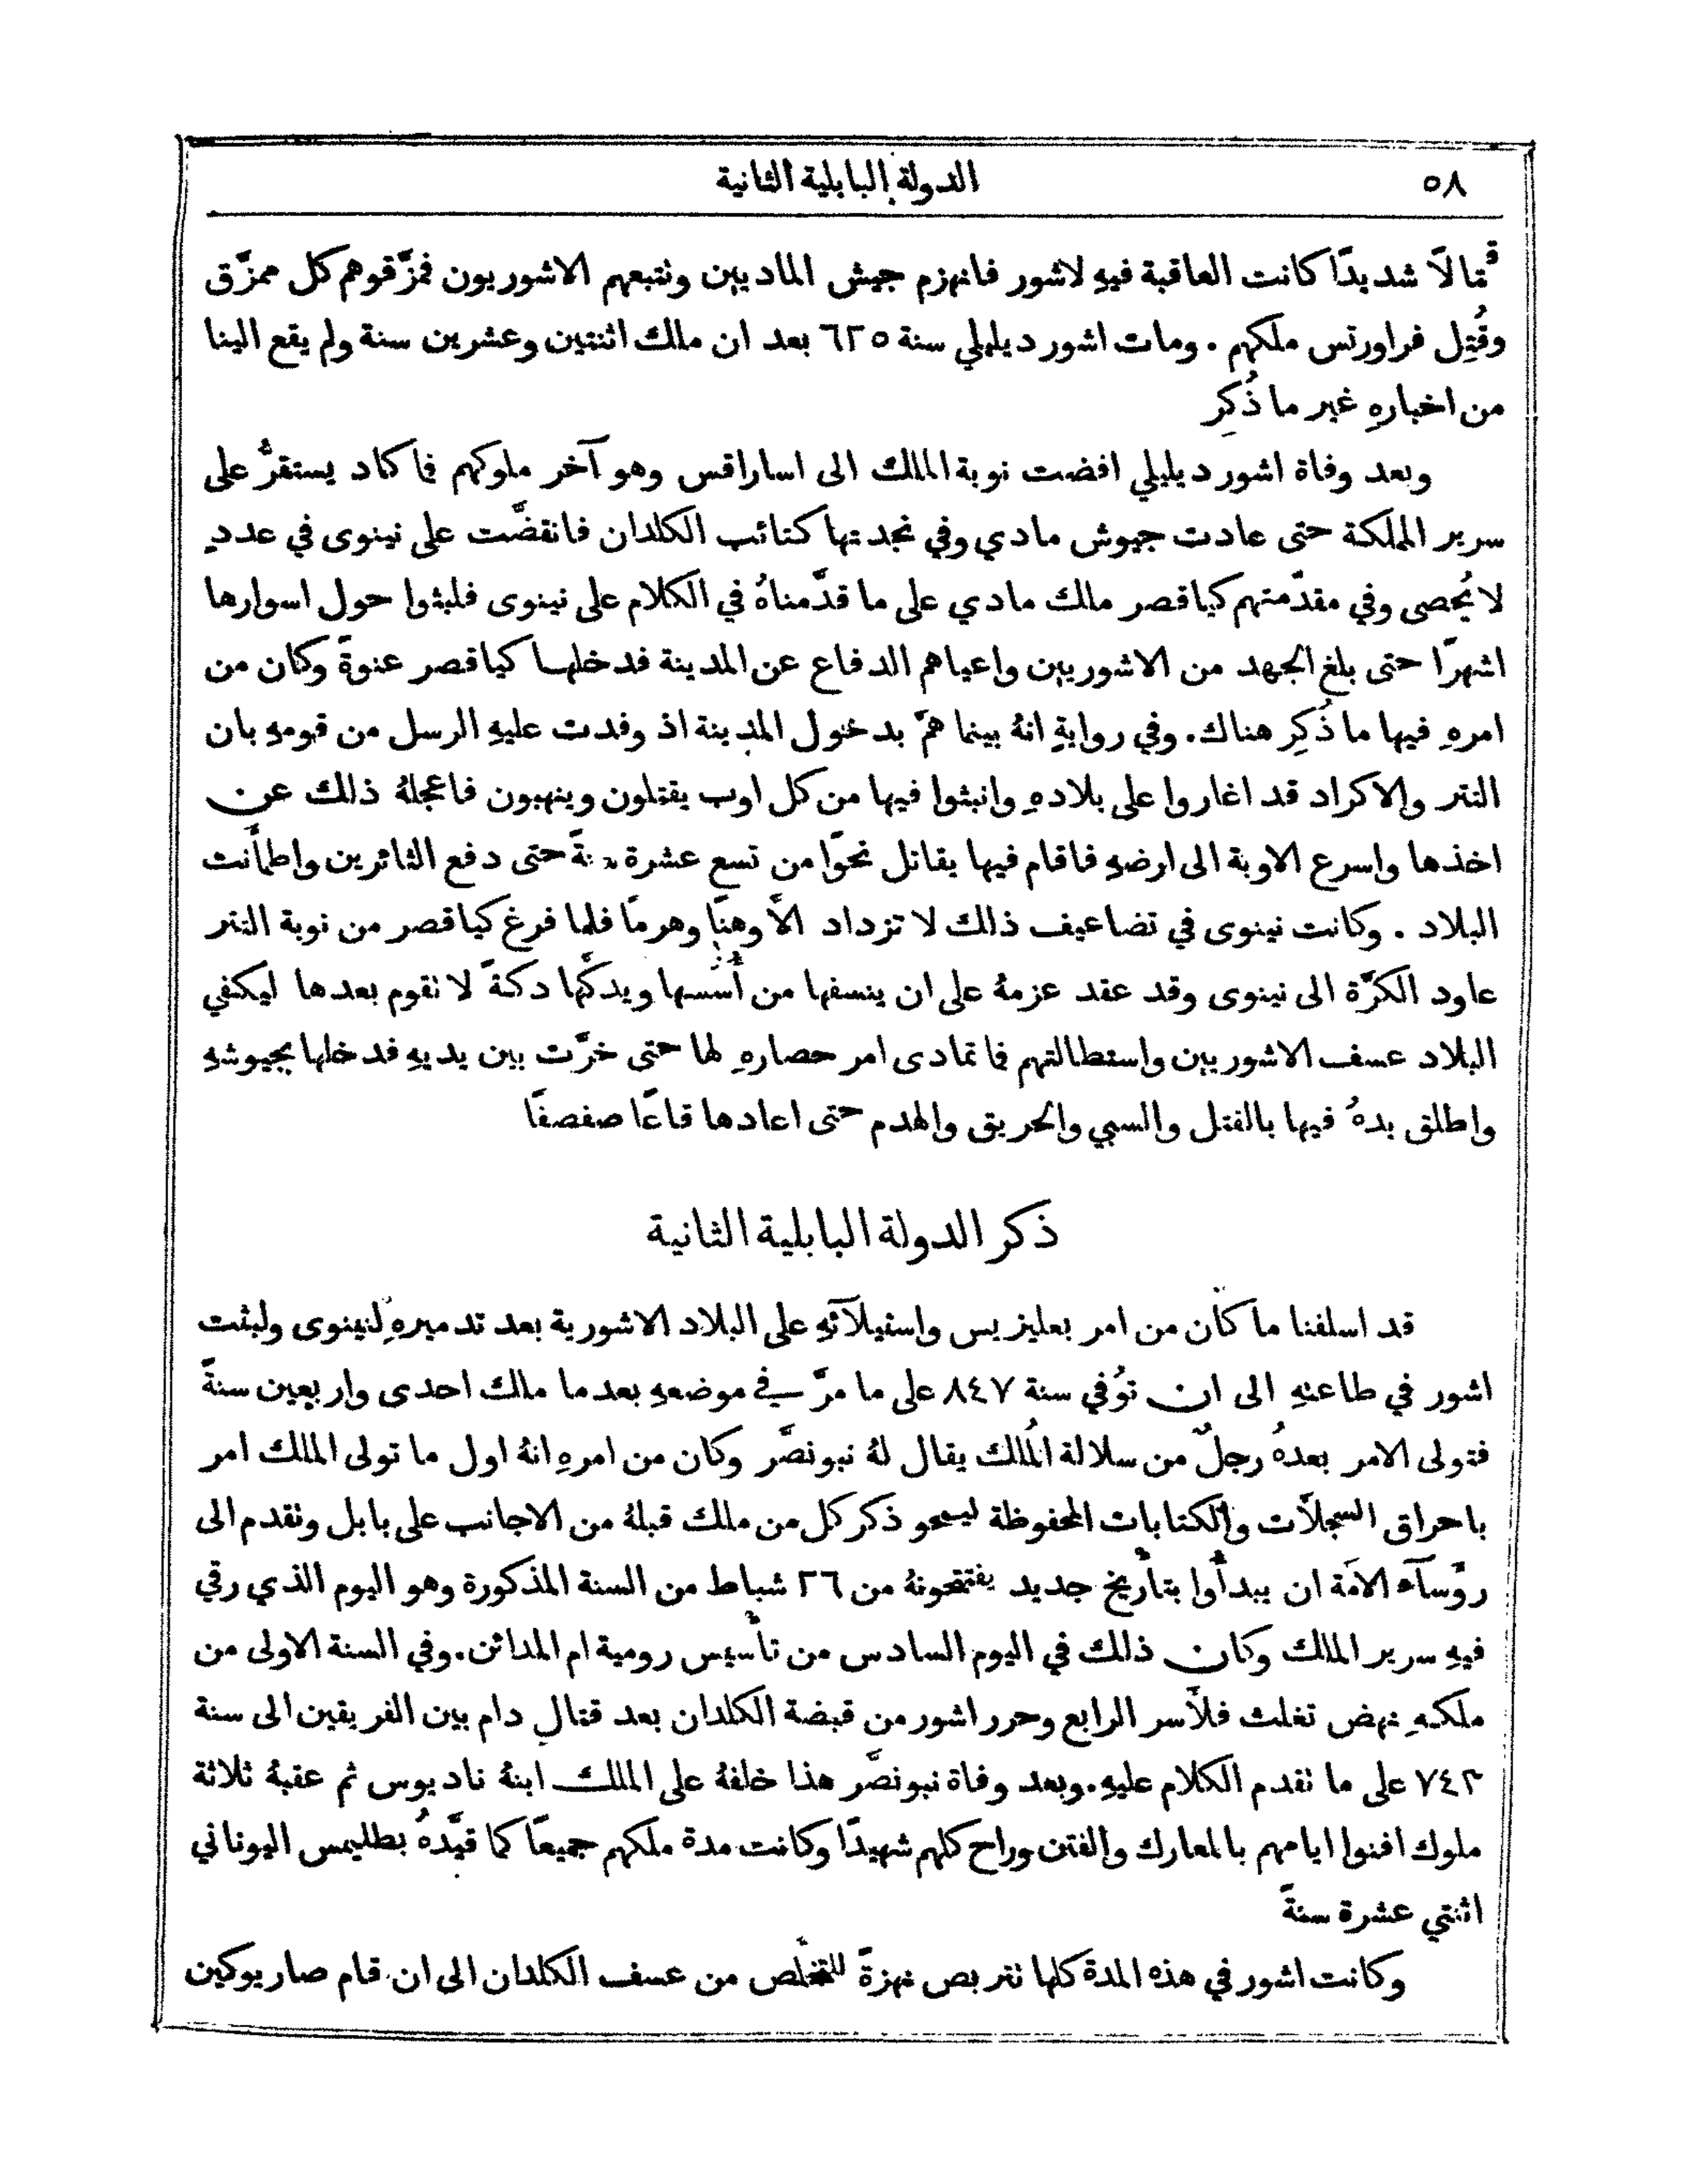 ٥٨
الدولة البابلية الثانية
قتالًا شديدًا كانت العاقبة فيهِ لاشور فانهزم جيش الماديين ونتبعهم الاشوريون فمزَّقوهم كل ممزَّق
وقُتِل فراورتس ملكهم . ومات اشور ديليلي سنة ٦٢٥ بعد ان ملك اثنتين وعشرين سنة ولم يقع الينا
من اخبارهِ غير ما ذُكِر
وبعد وفاة اشور ديليلي افضت نوبة الملك الى اساراقس وهو آخر ملوكهم فما كاد يستقرُّ على
سرير المملكة حتى عادت جيوش مادي وفي نجدتها كتائب الكلدان فانقضَّت على نينوى في عددٍ
لا يُحصى وفي مقدَّمتهم كياقصر ملك مادي على ما قدَّمناهُ في الكلام على نينوى فلبثوا حول اسوارها
اشهرًا حتى بلغ الجهد من الاشوريين واعياهم الدفاع عن المدينة فدخلها كياقصر عنوةً وكان من
امرهِ فيها ما ذُكِر هناك. وفي روايةٍ انهُ بينما همَّ بدخول المدينة اذ وفدت عليهِ الرسل من قومهِ بان
التتر والاكراد قد اغاروا على بلادهِ وانبثوا فيها من كل اوب يقتلون وينهبون فاعجلهُ ذلك عن
اخذها واسرع الاوبة الى ارضهِ فاقام فيها يقاتل نحوًا من تسع عشرة سنةً حتى دفع الثائرين واطمأَنت
البلاد . وكانت نينوى في تضاعيف ذلك لا تزداد الَّا وهنًا وهرمًا فلما فرغ كياقصر من نوبة التتر
عاود الكرَّة الى نينوى وقد عقد عزمهُ على ان ينسفها من أُسسها ويدكَّها دكةً لا نقوم بعدها ليكفي
البلاد عسف الاشوريين واستطالتهم فما تمادى امر حصارهِ لها حتى خرَّت بين يديهِ فدخلها بجيوشهِ
واطلق يدهُ فيها بالقتل والسبي والحريق والهدم حتى اعادها قاعًا صفصفًا
ذكر الدولة البابلية الثانية
قد اسلفنا ما كان من امر بعليزيس واستيلآئهِ على البلاد الاشورية بعد تدميرهِ لنينوى ولبثت
اشور في طاعتهِ الى ان تُوُفي سنة ٨٤٧ على ما مرَّ في موضعهِ بعد ما ملك احدى واربعين سنةً
فتولى الامر بعدهُ رجلٌ من سلالة المُلك يقال لهُ نبونصَّر وكان من امرهِ انهُ اول ما تولى الملك امر
باحراق السجلَّات والكتابات المحفوظة ليمحو ذكر كل من ملك قبلهُ من الاجانب على بابل ونقدم الى
روَّسآء الامَّة ان يبدأُوا بتأْريخ جديد يفتتحونهُ من ٢٦ شباط من السنة المذكورة وهو اليوم الذي رقي
فيهِ سرير الملك وكان ذلك في اليوم السادس من تأْسيس رومية ام المدائن. وفي السنة الاولى من
ملكهِ نهض تغلث فلأَسر الرابع وحرر اشور من قبضة الكلدان بعد قتالٍ دام بين الفريقين الى سنة
٧٤٣ على ما نقدم الكلام عليهِ. وبعد وفاة نبونصَّر هذا خلفهُ على الملك ابنهُ ناديوس ثم عقبهُ ثلاثة
ملوك افنوا ايامهم بالمعارك والفتن وراح كلهم شهيدًا وكانت مدة ملكهم جميعًا كما قيَّدهُ بطليمس اليوناني
اثنتي عشرة سنةً
وكانت اشور في هذه المدة كلها نتربص نهزةً للتخلُّص من عسف الكلدان الى ان قام صاريوكين